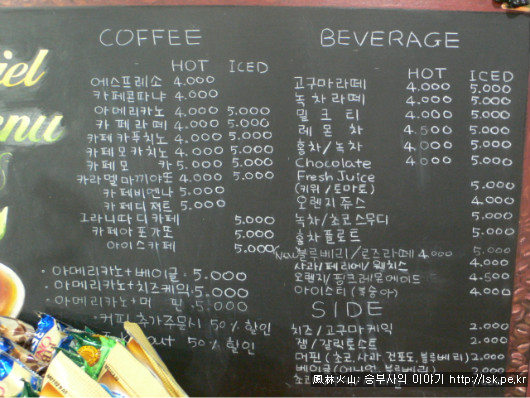 COFFEE
HOT ICED
에스프레소 4.000
카페콘파냐 4.000
아메리카노 4.000 5.000
카페라떼 4.000 5.000
카페카푸치노 4.000 5.000
카페모카치노 4.000 5.000
카페모카 5.000 5.000
카라멜마끼아또 4.000 5.000
카페비엔나 5.000
카페디저트 5.000
그라니따디카페 5.000
카페아포가또 5.000
아이스카페 5.000
·아메리카노+베이글· 5.000
·아메리카노+치즈케익· 5.000
·아메리카노+머핀· 5.000
·커피 추가주문시 50% 할인
out 50% 할인
BEVERAGE
HOT ICED
고구마라떼 4.000 5.000
녹차라떼 4.000 5.000
밀크티 4.000 5.000
레몬차 4.500 5.000
홍차/녹차 4.000 5.000
Chocolate 4.000 5.000
Fresh Juice
(키위/토마토) 5.000
오렌지쥬스 4.000
녹차/초코스무디 5.000
홍차플로트 5.000
New 블루베리/로즈라떼 4.000 5.000
사과/페리에/웰치스 4.000
오렌지/핑크레몬에이드 4.500
아이스티 (복숭아) 4.000
SIDE
치즈/고구마케익 2.000
잼/갈릭토스트 2.000
머핀 (초코,사과,건포도,블루베리) 2.000
베이글(어니언,블루베리) 2.000
초코
風林火山: 승부사의 이야기 http://lsk.pe.kr